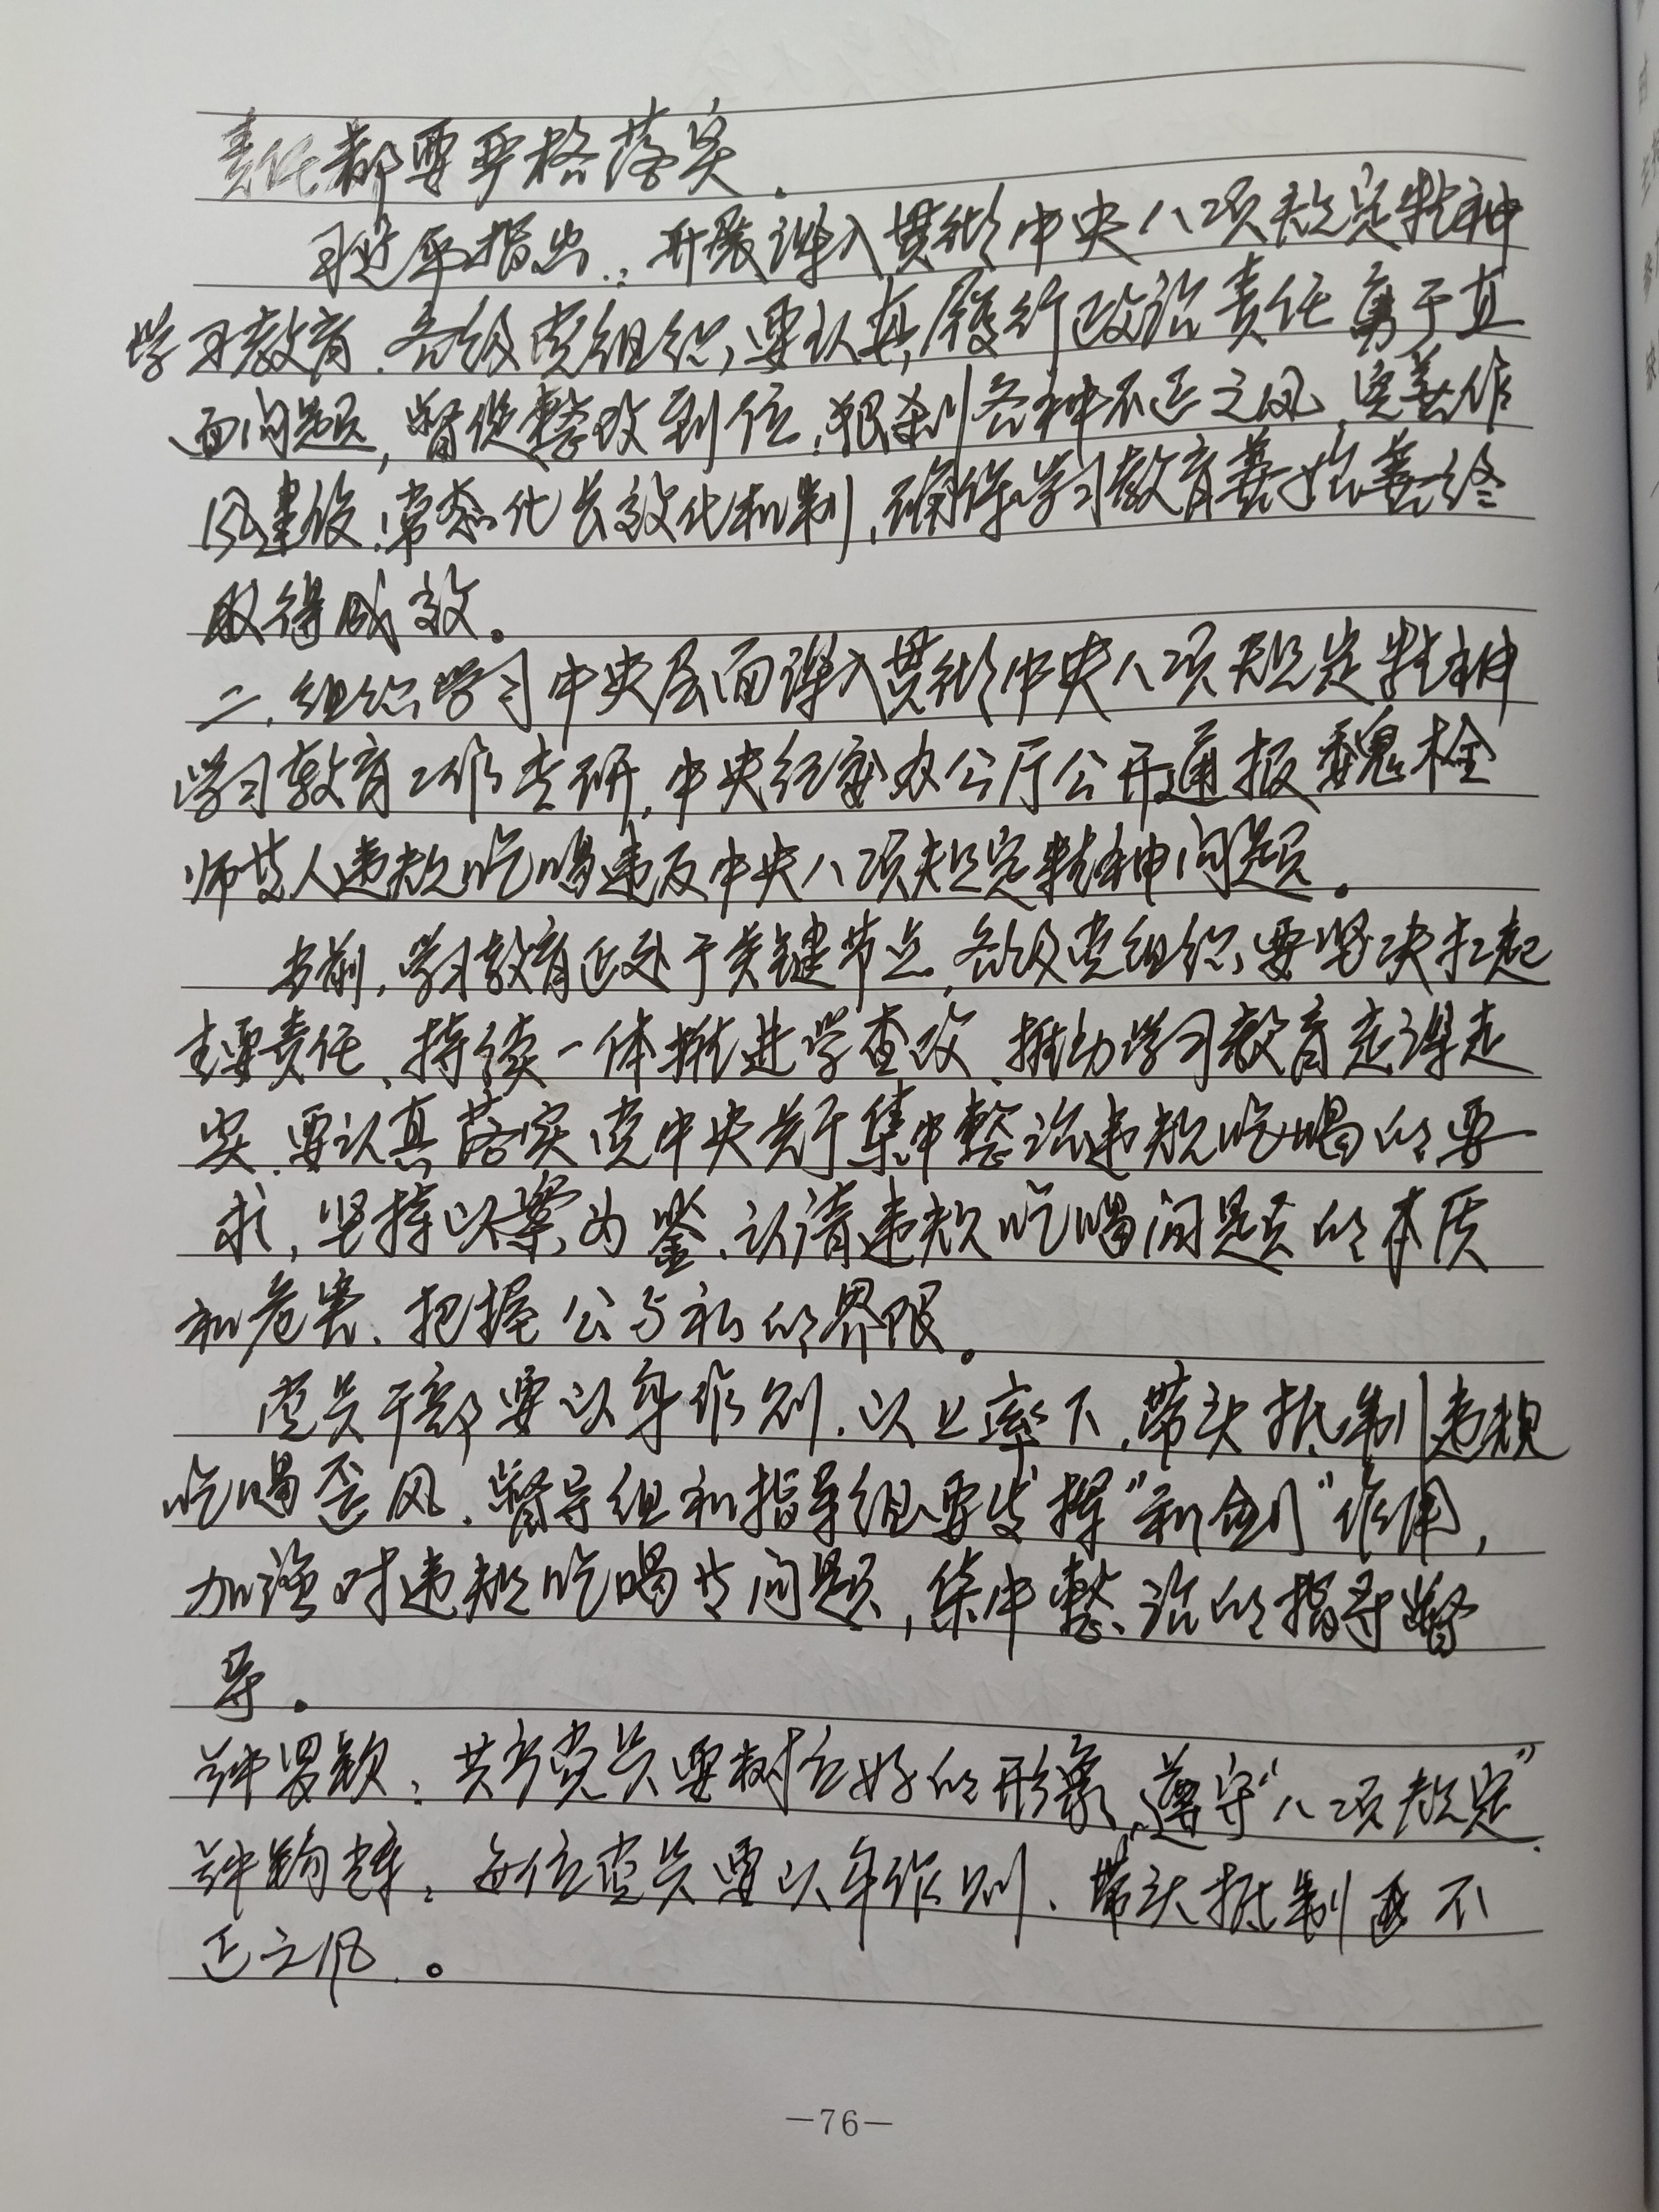 责任都要严格落实.
习近平指出:开展深入贯彻中央八项规定精神
学习教育.各级党组织,要认真履行政治责任勇于直
面问题,督促整改到位.狠刹各种不正之风,完善作
风建设.常态化长效化机制,确保学习教育善始善终
取得成效。
二.组织学习中央层面深入贯彻中央八项规定精神
学习教育工作专研,中央纪委办公厅公开通报魏栓
师等人违规吃喝违反中央八项规定精神问题。
当前,学习教育正处于关键节点,各级党组织要坚决扛起
主要责任、持续一体推进学查改、推动学习教育走深走
实.要认真落实党中央关于集中整治违规吃喝的要
求,坚持以案为鉴、认清违规吃喝问题的本质
和危害、把握公与私的界限。
党员干部要以身作则.以上率下,带头抵制违规
吃喝歪风.督导组和指导组要发挥“利剑”作用,
加强对违规吃喝等问题,集中整治的指导督
导。
钟 :共产党员要树立好的形象,遵守“八项规定”.
钟 :每位党员要以身作则、带头抵制 不
正之风.。
—76—